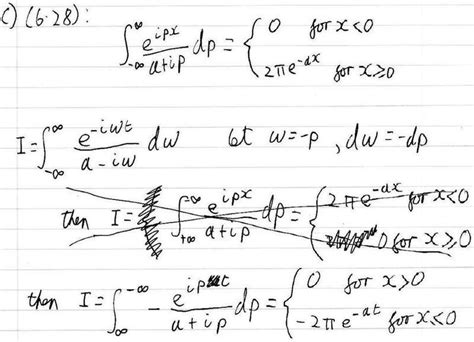 c) (6.28):
∫_{-∞}^{∞} e^{ipx}/(a+ip) dp = { 0 for x<0
2πe^{-ax} for x≥0
I = ∫_{-∞}^{∞} e^{-iwt}/(a-iw) dw let w=-p, dw=-dp
then I = ∫_{+∞}^{-∞} e^{ipx}/(a+ip) dp = { 2πe^{-ax} for x<0
0 for x≥0
then I = ∫_{∞}^{-∞} - e^{ipt}/(a+ip) dp = { 0 for x>0
-2πe^{-at} for x<0